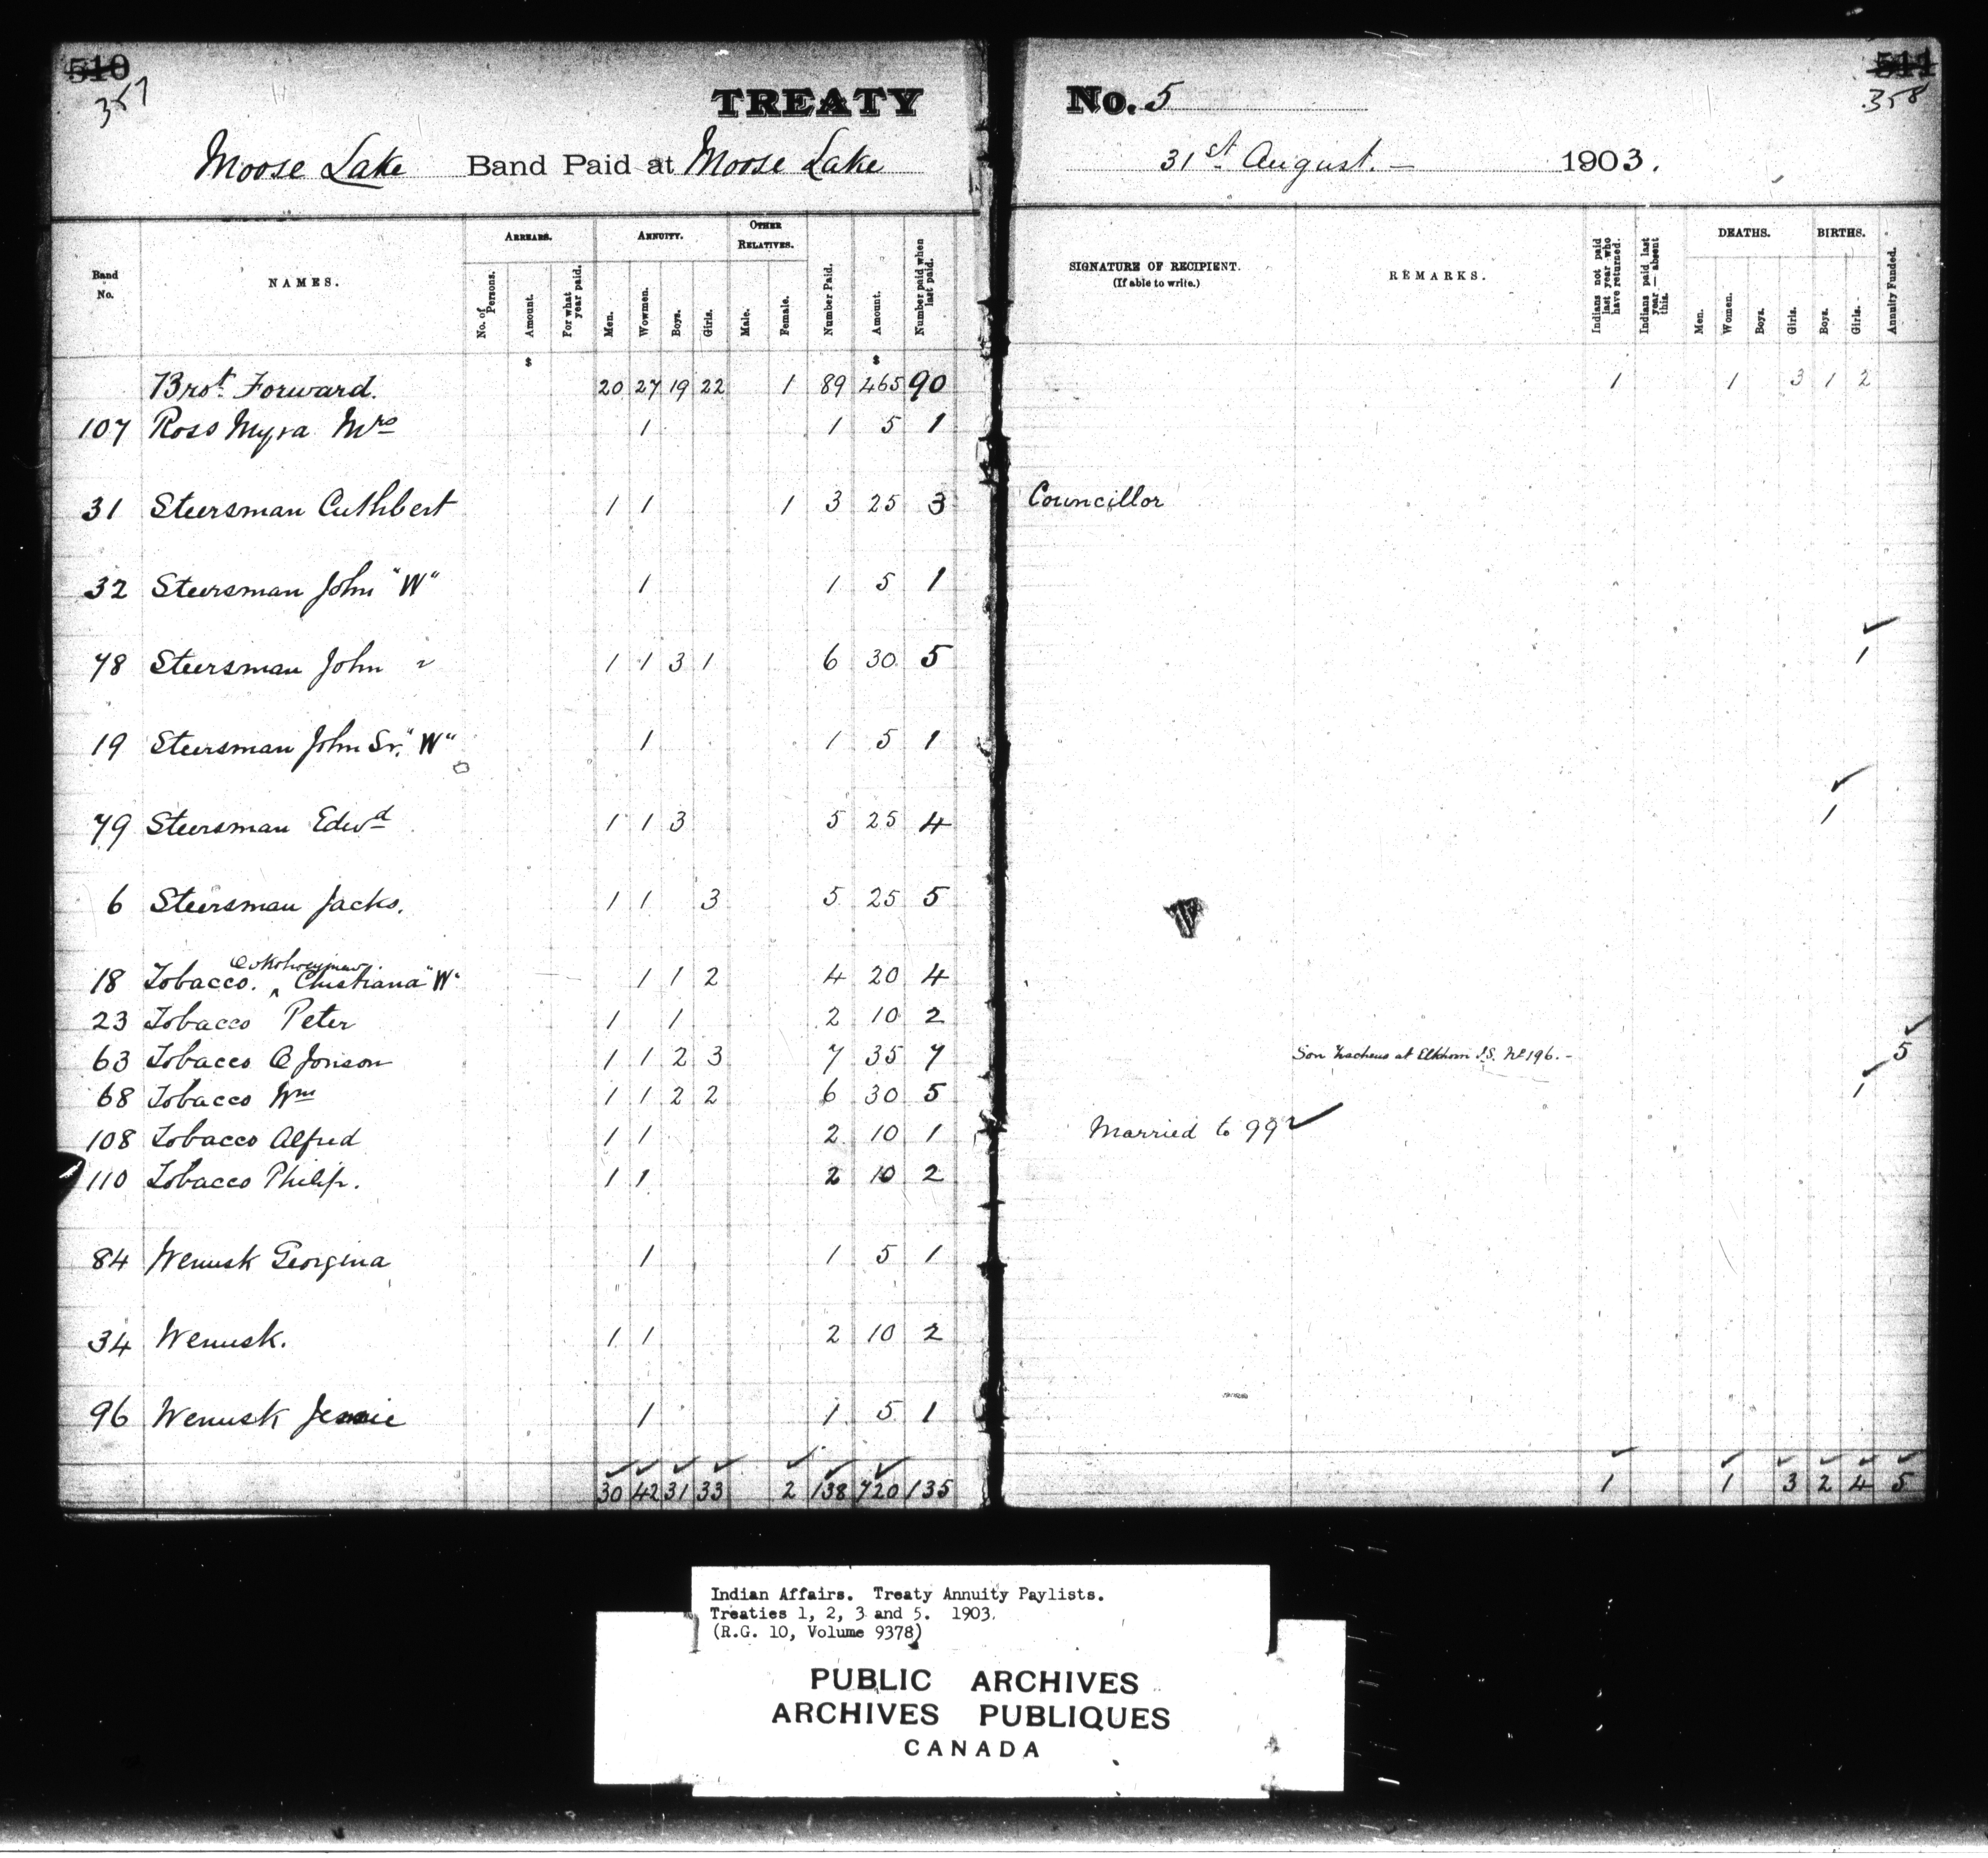 510
357
TREATY
Moose Lake Band Paid at Moose Lake
Band No. NAMES. ARREARS. ANNUITY. OTHER RELATIVES. Number Paid. Amount. Number paid when last paid.
No. of Persons. Amount. For what year paid. Men. Wowmen. Boys. Girls. Male. Female.
$ $
Brot Forward. 20 27 19 22 1 89 465 90
107 Ross Myra Mrs 1 1 5 1
31 Steersman Cuthbert 1 1 1 3 25 3
32 Steersman John "W" 1 1 5 1
78 Steersman John 1 1 3 1 6 30 5
19 Steersman John Sr. "W" 1 1 5 1
79 Steersman Edwd 1 1 3 5 25 4
6 Steersman Jacks. 1 1 3 5 25 5
18 Tobacco. Christiana "W" 1 1 2 4 20 4
23 Tobacco Peter 1 1 2 10 2
63 Tobacco O Jonson 1 1 2 3 7 35 7
68 Tobacco Wm 1 1 2 2 6 30 5
108 Tobacco Alfred 1 1 2 10 1
110 Tobacco Philip. 1 1 2 10 2
84 Wenusk Georgina 1 1 5 1
34 Wenusk. 1 1 2 10 2
96 Wenusk Jessie 1 1 5 1
30 42 31 33 2 138 720 135
511
358
No. 5
31st August. — 1903.
SIGNATURE OF RECIPIENT. (If able to write.) REMARKS. Indians not paid last year who have returned. Indians paid last year — absent this. DEATHS. BIRTHS. Annuity Funded.
Men. Women. Boys. Girls. Boys. Girls.
1 1 3 1 2
Councillor
1
1
Son Zacheus at Elkhorn I.S. No 196. – 5
1
Married to 99
1 1 3 2 4 5
Indian Affairs. Treaty Annuity Paylists.
Treaties 1, 2, 3 and 5. 1903.
(R.G. 10, Volume 9378)
PUBLIC ARCHIVES
ARCHIVES PUBLIQUES
CANADA